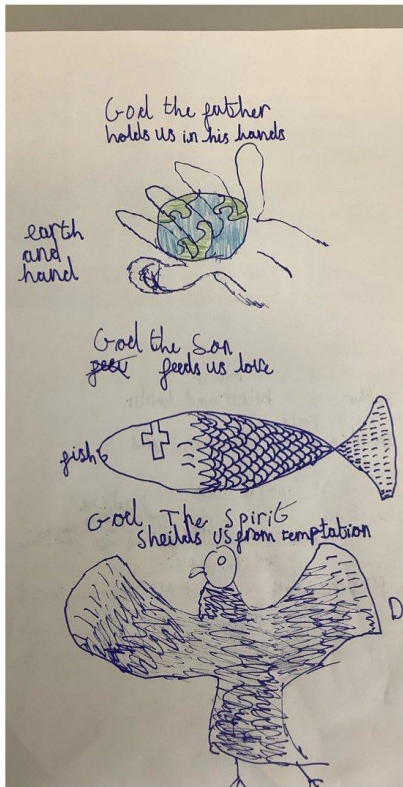 God the father
holds us in his hands
earth
and
hand
God the Son
feeds us love
fish
God The Spirit
sheilds us from temptation
D